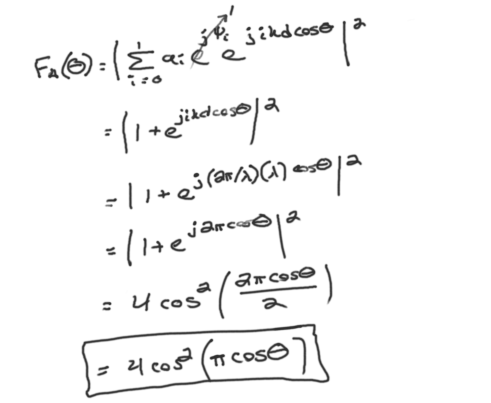 F_A(θ) = |∑_{i=0}^{1} a_i e^{jψ_i}↗1 e^{jikdcosθ}|^2
= |1 + e^{jikdcosθ}|^2
= |1 + e^{j(2π/λ)(λ)cosθ}|^2
= |1 + e^{j2πcosθ}|^2
= 4 cos^2 (2πcosθ/2)
= 4 cos^2 (πcosθ)